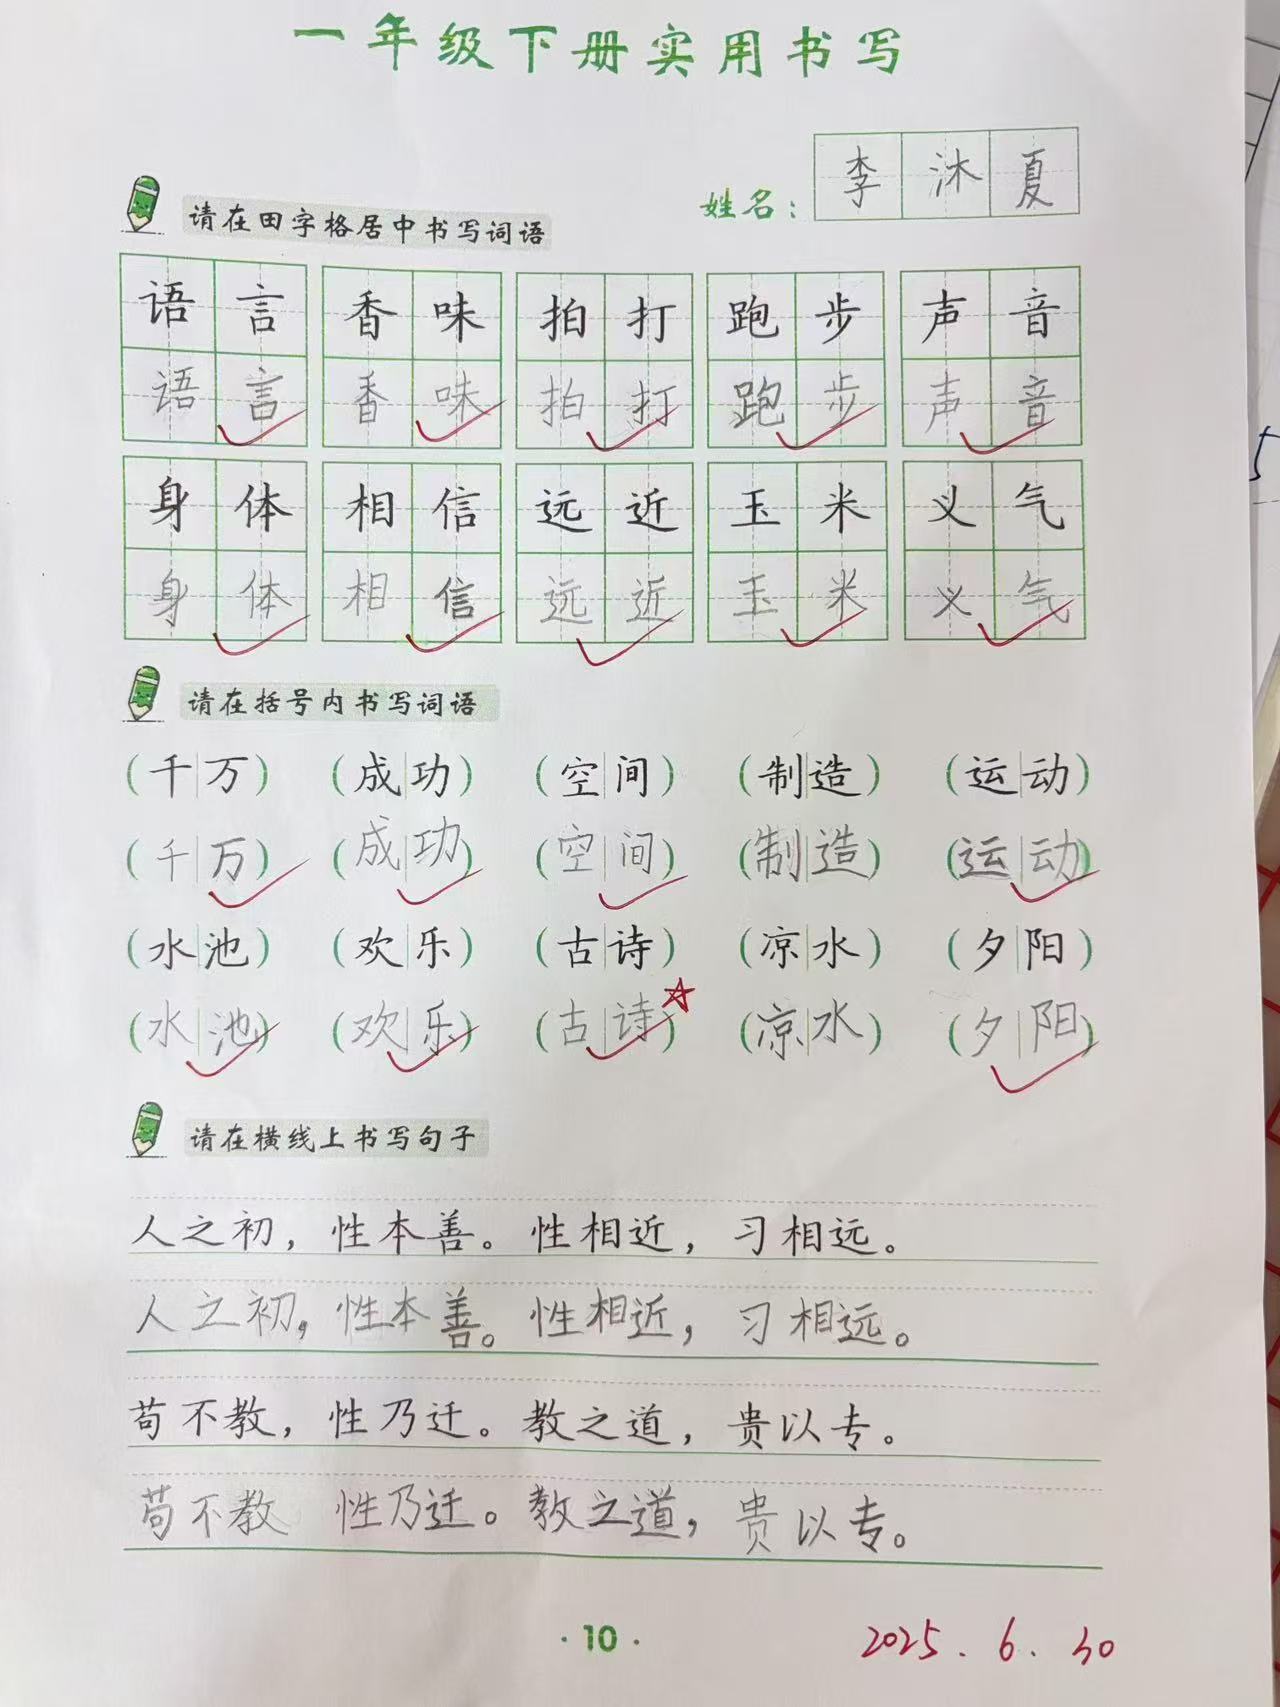 一年级下册实用书写
姓名：李沐夏
请在田字格居中书写词语
语言 香味 拍打 跑步 声音
语言 香味 拍打 跑步 声音
身体 相信 远近 玉米 义气
身体 相信 远近 玉米 义气
请在括号内书写词语
（千万）（成功）（空间）（制造）（运动）
（千万）（成功）（空间）（制造）（运动）
（水池）（欢乐）（古诗）（凉水）（夕阳）
（水池）（欢乐）（古诗）（凉水）（夕阳）
请在横线上书写句子
人之初，性本善。性相近，习相远。
人之初，性本善。性相近，习相远。
苟不教，性乃迁。教之道，贵以专。
苟不教 性乃迁。教之道，贵以专。
·10·
2025.6.30